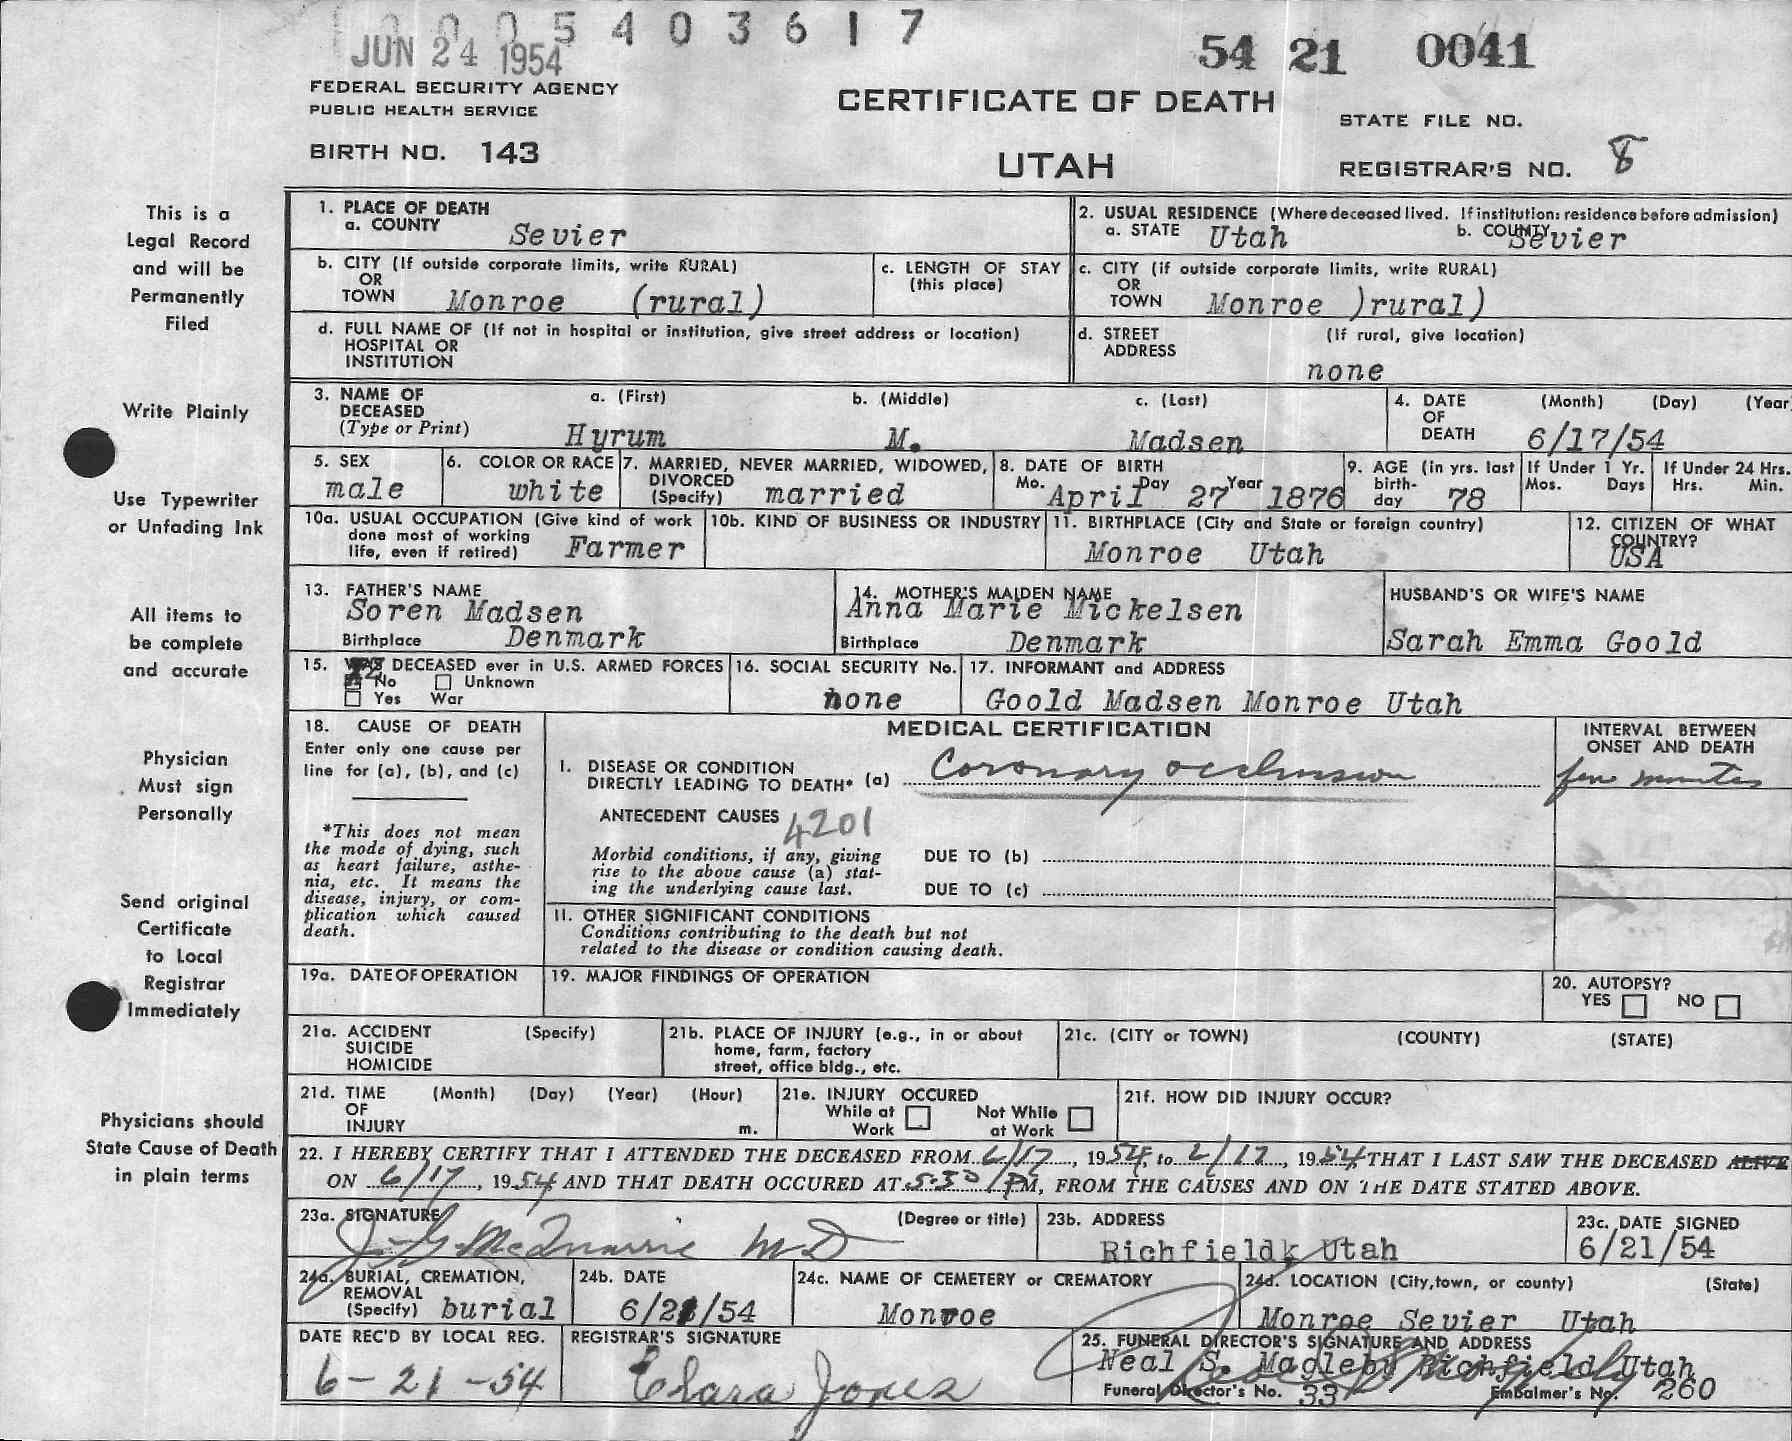 0 0 0 5 4 0 3 6 1 7
JUN 24 1954
54 21 0041
FEDERAL SECURITY AGENCY
PUBLIC HEALTH SERVICE
CERTIFICATE OF DEATH
STATE FILE NO.
BIRTH NO. 143
UTAH
REGISTRAR'S NO. 8
This is a
Legal Record
and will be
Permanently
Filed
Write Plainly
Use Typewriter
or Unfading Ink
All items to
be complete
and accurate
Physician
Must sign
Personally
Send original
Certificate
to Local
Registrar
Immediately
Physicians should
State Cause of Death
in plain terms
1. PLACE OF DEATH
a. COUNTY Sevier
2. USUAL RESIDENCE (Where deceased lived. If institution: residence before admission)
a. STATE Utah b. COUNTY Sevier
b. CITY (If outside corporate limits, write RURAL)
OR
TOWN Monroe (rural)
c. LENGTH OF STAY
(this place)
c. CITY (if outside corporate limits, write RURAL)
OR
TOWN Monroe )rural)
d. FULL NAME OF (If not in hospital or institution, give street address or location)
HOSPITAL OR
INSTITUTION
d. STREET (If rural, give location)
ADDRESS
none
3. NAME OF a. (First) b. (Middle) c. (Last)
DECEASED
(Type or Print) Hyrum M. Madsen
4. DATE (Month) (Day) (Year
OF
DEATH 6/17/54
5. SEX
male
6. COLOR OR RACE
white
7. MARRIED, NEVER MARRIED, WIDOWED,
DIVORCED
(Specify) married
8. DATE OF BIRTH
Mo. April Day 27 Year 1876
9. AGE (in yrs. last
birth-
day 78
If Under 1 Yr.
Mos. Days
If Under 24 Hrs.
Hrs. Min.
10a. USUAL OCCUPATION (Give kind of work
done most of working
life, even if retired) Farmer
10b. KIND OF BUSINESS OR INDUSTRY
11. BIRTHPLACE (City and State or foreign country)
Monroe Utah
12. CITIZEN OF WHAT
COUNTRY?
USA
13. FATHER'S NAME
Soren Madsen
Birthplace Denmark
14. MOTHER'S MAIDEN NAME
Anna Marie Mickelsen
Birthplace Denmark
HUSBAND'S OR WIFE'S NAME
Sarah Emma Goold
15. WAS DECEASED ever in U.S. ARMED FORCES
No Unknown
Yes War
16. SOCIAL SECURITY No.
none
17. INFORMANT and ADDRESS
Goold Madsen Monroe Utah
18. CAUSE OF DEATH
Enter only one cause per
line for (a), (b), and (c)
*This does not mean
the mode of dying, such
as heart failure, asthe-
nia, etc. It means the
disease, injury, or com-
plication which caused
death.
MEDICAL CERTIFICATION
I. DISEASE OR CONDITION
DIRECTLY LEADING TO DEATH* (a) Coronary occlusion
ANTECEDENT CAUSES 4201
Morbid conditions, if any, giving
rise to the above cause (a) stat-
ing the underlying cause last.
DUE TO (b)
DUE TO (c)
II. OTHER SIGNIFICANT CONDITIONS
Conditions contributing to the death but not
related to the disease or condition causing death.
INTERVAL BETWEEN
ONSET AND DEATH
few minutes
19a. DATE OF OPERATION
19. MAJOR FINDINGS OF OPERATION
20. AUTOPSY?
YES NO
21a. ACCIDENT (Specify)
SUICIDE
HOMICIDE
21b. PLACE OF INJURY (e.g., in or about
home, farm, factory
street, office bldg., etc.
21c. (CITY or TOWN) (COUNTY) (STATE)
21d. TIME (Month) (Day) (Year) (Hour)
OF
INJURY m.
21e. INJURY OCCURED
While at Not While
Work at Work
21f. HOW DID INJURY OCCUR?
22. I HEREBY CERTIFY THAT I ATTENDED THE DECEASED FROM 6/17, 1954, to 6/17, 1954, THAT I LAST SAW THE DECEASED ALIVE
ON 6/17, 1954 AND THAT DEATH OCCURED AT 5:30 PM, FROM THE CAUSES AND ON THE DATE STATED ABOVE.
23a. SIGNATURE (Degree or title)
J. G. McQuarrie MD
23b. ADDRESS
Richfield, Utah
23c. DATE SIGNED
6/21/54
24a. BURIAL, CREMATION,
REMOVAL
(Specify) burial
24b. DATE
6/21/54
24c. NAME OF CEMETERY or CREMATORY
Monroe
24d. LOCATION (City, town, or county) (State)
Monroe Sevier Utah
DATE REC'D BY LOCAL REG.
6-21-54
REGISTRAR'S SIGNATURE
Chara Jones
25. FUNERAL DIRECTOR'S SIGNATURE AND ADDRESS
Neal S. Magleby Richfield Utah
Funeral Director's No. 33 Embalmer's No. 260